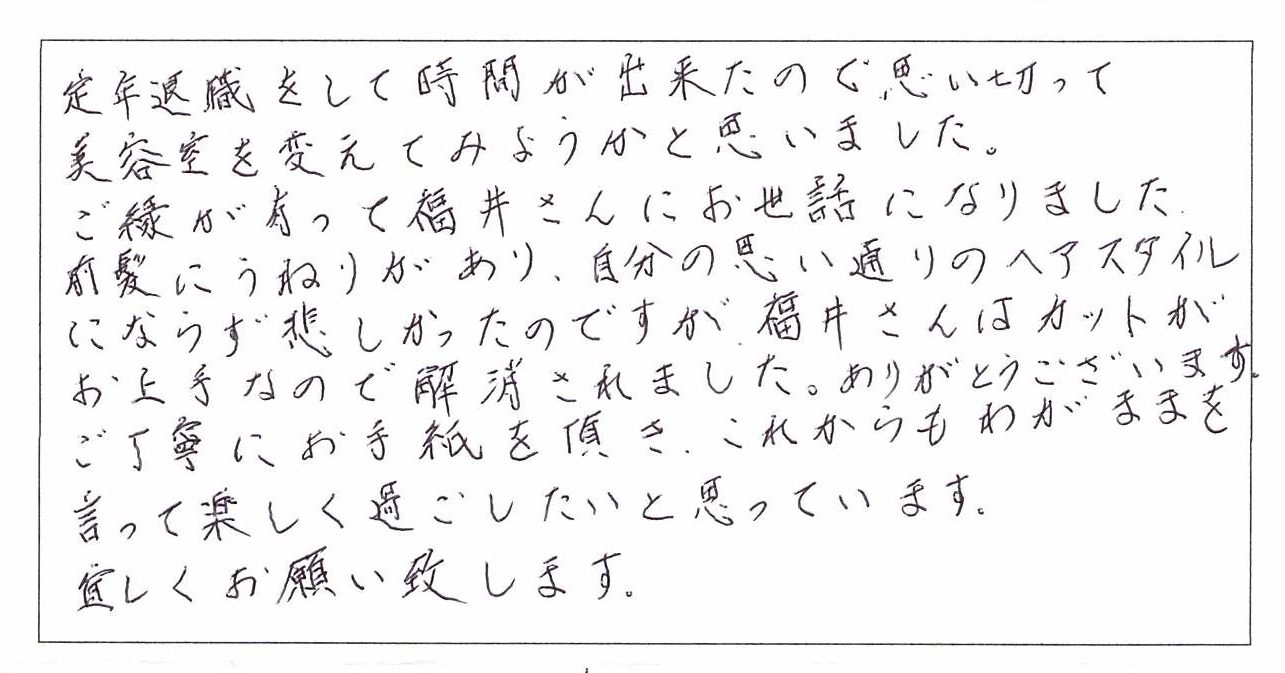 定年退職をして時間が出来たので思い切って
美容室を変えてみようかと思いました。
ご縁が有って福井さんにお世話になりました.
前髪にうねりがあり、自分の思い通りのヘアスタイル
にならず悲しかったのですが、福井さんはカットが
お上手なので解消されました。ありがとうございます。
ご丁寧にお手紙を頂き、これからもわがままを
言って楽しく過ごしたいと思っています。
宜しくお願い致します。